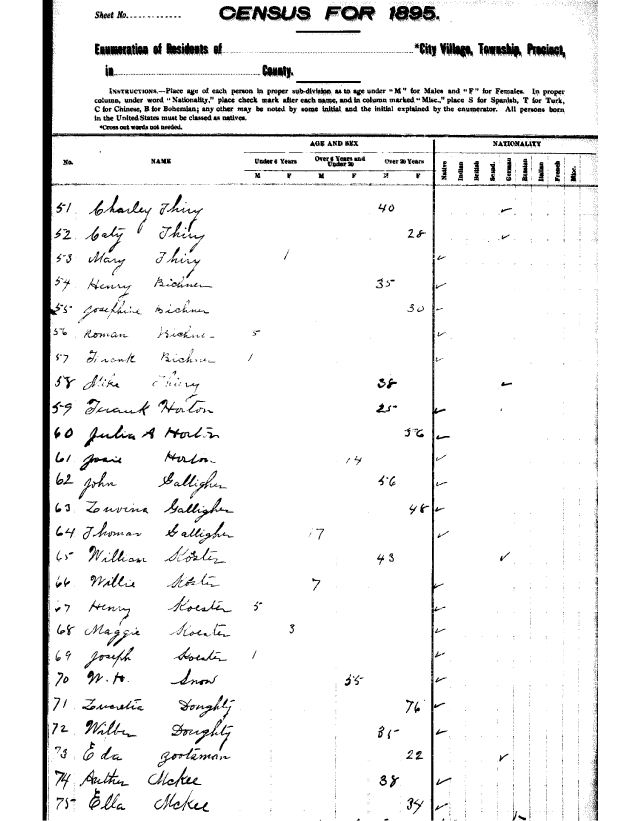 Sheet No.
CENSUS FOR 1895.
Enumeration of Residents of *City Village, Township, Precinct,
in County.
INSTRUCTIONS.—Place age of each person in proper sub-division as to age under "M" for Males and "F" for Females. In proper
column, under word "Nationality," place check mark after each name, and in column marked "Misc.," place S for Spanish, T for Turk,
C for Chinese, B for Bohemian; any other may be noted by some initial and the initial explained by the enumerator. All persons born
in the United States must be classed as natives.
*Cross out words not needed.
AGE AND SEX NATIONALITY
No. NAME Under 6 Years Over 6 Years and Under 20 Over 20 Years Native Indian British Scand. German Russian Italian French Misc.
M F M F M F
51 Charley Thiry 40 ✓
52 Caty Thiry 28 ✓
53 Mary Thiry 1 ✓
54 Henry Bichner 35 ✓
55 Josephine Bichner 30 ✓
56 Roman 5 ✓
57 Frank Bichner 1 ✓
58 Mike Thiry 38 ✓
59 Frank Horton 25 ✓
60 Julia A Horton 56 ✓
61 Josie Horton 14 ✓
62 John Galligher 56 ✓
63 Galligher 48 ✓
64 Thomas Galligher 17 ✓
65 William Koster 43 ✓
66 Willie Koster 7 ✓
67 Henry Koester 5 ✓
68 Maggie Koester 3 ✓
69 Joseph Koester 1 ✓
70 W. H. Snow 55 ✓
71 Doughty 76 ✓
72 Wilber Doughty 35 ✓
73 Eda 22 ✓
74 Arther McKee 38 ✓
75 Ella McKee 34 ✓